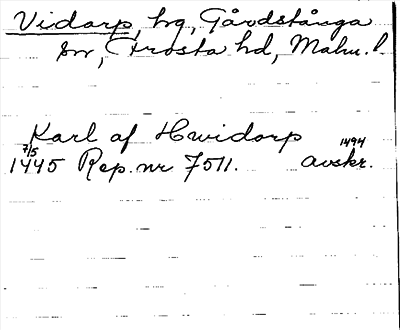 Vidarp, hg, Gårdstånga
sn, Frosta hd, Malm. l.
Karl af Hwidorp
7/5 1494
1445 Rep. nr 7511. avskr.